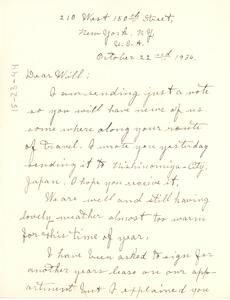 210 West 150th Street,
New York, N.Y.
U.S.A.
October 22nd 1936.
Dear Will:
I am sending just a note
so you will have news of us
some where along your route
of travel. I wrote you yesterday
sending it to Nishinomiya-City,
Japan. I hope you receive it.
We are well and still having
lovely weather almost too warm
for this time of year.
I have been asked to sign for
another years lease on our app-
artment but I explained you
15-23-44